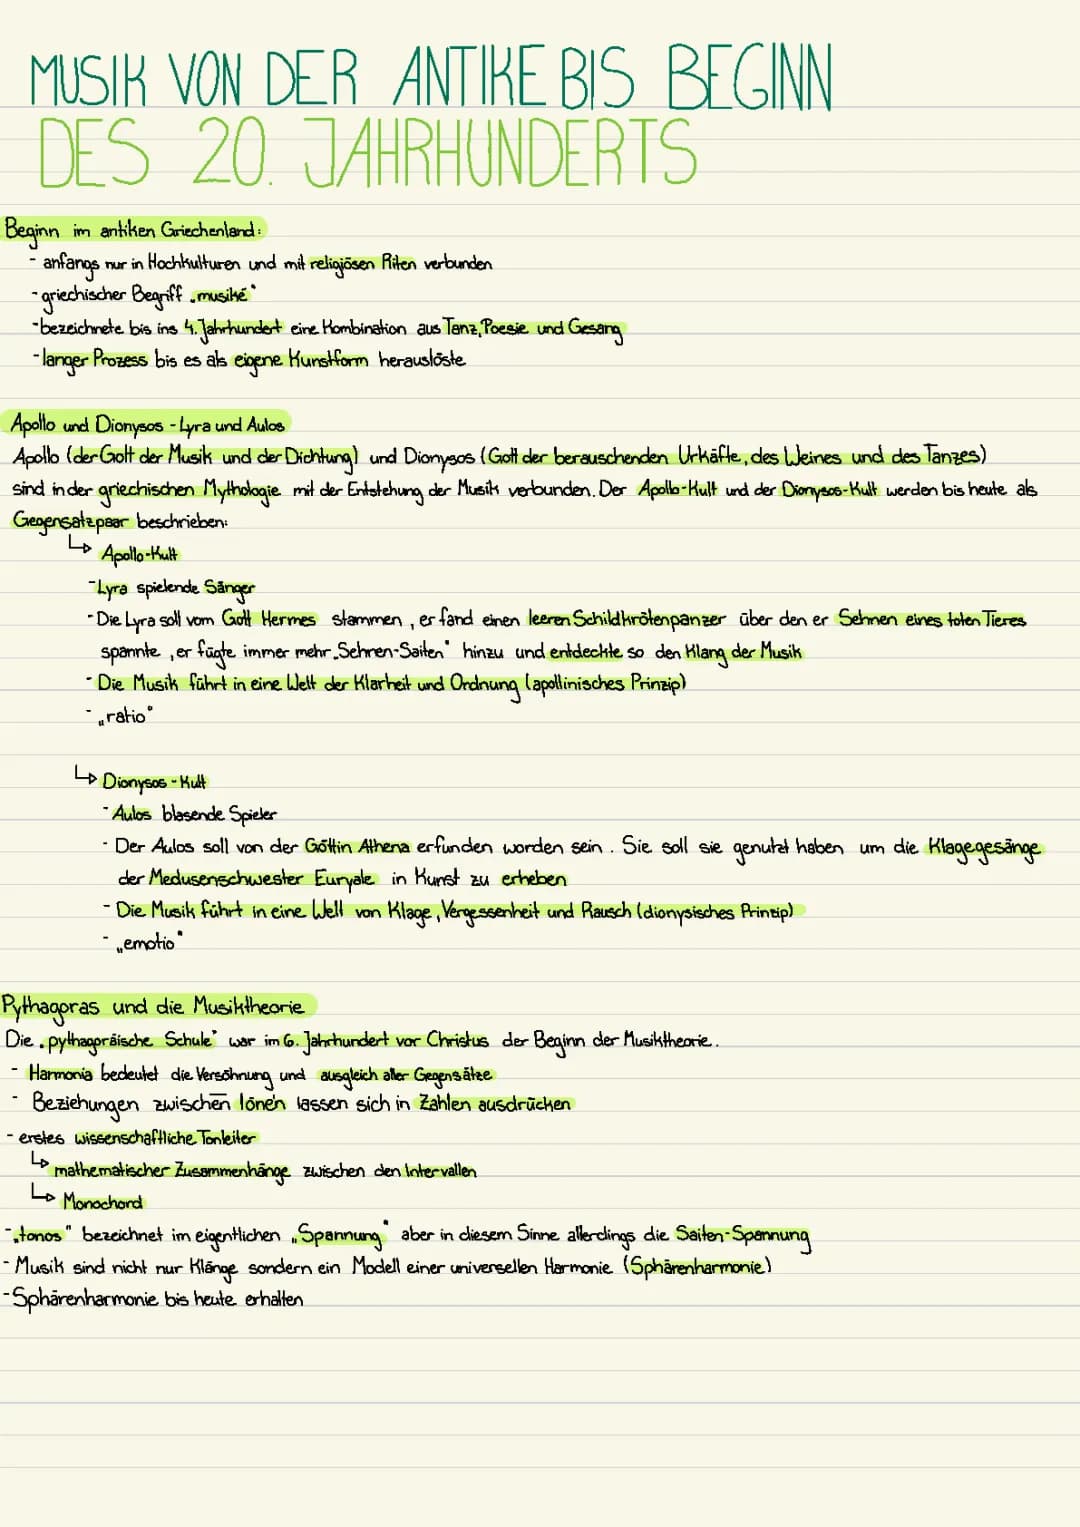 MUSIK VON DER ANTIKE BIS BEGINN
DES 20. JAHRHUNDERTS
Beginn im antiken Griechenland:
- anfangs nur in Hochkulturen und mit religiösen Riten verbunden
- griechischer Begriff „musiké"
- bezeichnete bis ins 4. Jahrhundert eine Kombination aus Tanz, Poesie und Gesang
- langer Prozess bis es als eigene Kunstform herauslöste
Apollo und Dionysos - Lyra und Aulos
Apollo (der Gott der Musik und der Dichtung) und Dionysos (Gott der berauschenden Urkäfte, des Weines und des Tanzes)
sind in der griechischen Mythologie mit der Entstehung der Musik verbunden. Der Apollo-Kult und der Dionysos-Kult werden bis heute als
Gegensatzpaar beschrieben:
↳ Apollo-Kult
- Lyra spielende Sänger
- Die Lyra soll vom Gott Hermes stammen, er fand einen leeren Schildkrötenpanzer über den er Sehnen eines toten Tieres
spannte, er fügte immer mehr „Sehnen-Saiten" hinzu und entdeckte so den Klang der Musik
- Die Musik führt in eine Welt der Klarheit und Ordnung (apollinisches Prinzip)
- „ratio"
↳ Dionysos - Kult
- Aulos blasende Spieler
- Der Aulos soll von der Göttin Athena erfunden worden sein. Sie soll sie genutzt haben um die Klagegesänge
der Medusenschwester Euryale in Kunst zu erheben
- Die Musik führt in eine Welt von Klage, Vergessenheit und Rausch (dionysisches Prinzip)
- „emotio"
Pythagoras und die Musiktheorie
Die „pythagoräische Schule" war im 6. Jahrhundert vor Christus der Beginn der Musiktheorie.
- Harmonia bedeutet die Versöhnung und ausgleich aller Gegensätze
- Beziehungen zwischen Tönen lassen sich in Zahlen ausdrücken
- erstes wissenschaftliche Tonleiter
↳ mathematischer Zusammenhänge zwischen den Intervallen
↳ Monochord
- „tonos" bezeichnet im eigentlichen „Spannung" aber in diesem Sinne allerdings die Saiten-Spannung
- Musik sind nicht nur Klänge sondern ein Modell einer universellen Harmonie (Sphärenharmonie)
- Sphärenharmonie bis heute erhalten